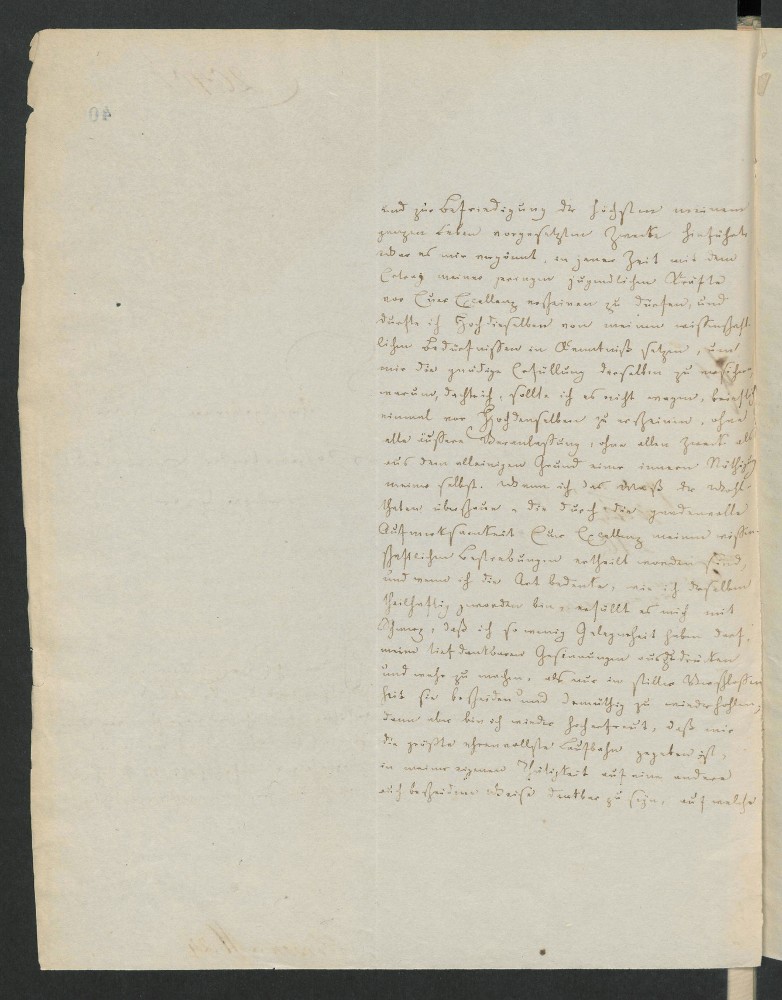 und zur Befriedigung der höchsten meinem
ganzen Leben vorgesetzten Zwecke hinführte
War es mir vergönnt, in jener Zeit mit dem
Ertrag meiner geringen jugendlichen Kräfte
vor Euer Excellenz erscheinen zu dürfen, und
durfte ich Hochdieselben von meinen wissenschaft
lichen Bedürfnissen in Kenntniß setzen, um
mir die gnädige Erfüllung derselben zu
warum, dachte ich, sollte ich es nicht wagen,
einmal vor Hochdenselben zu erscheinen, ohne
alle äußere Veranlassung, ohne allen Zweck als
aus dem alleinigen Grund einer inneren Nöthigung
meiner selbst. Wenn ich das Maaß der Wohl-
thaten überschaue, die durch die gnadenvolle
Aufmerksamkeit Euer Excellenz meinen wissen-
schaftlichen Bestrebungen ertheilt worden sind,
und wenn ich die Art bedenke, wie ich derselben
theilhaftig geworden bin, erfüllt es mich mit
Schmerz, daß ich so wenig Gelegenheit haben darf,
meine tief dankbaren Gesinnungen auszudrücken
und wahr zu machen, als nur in stiller Verschlossen
heit sie bescheiden und demüthig zu wiederhohlen;
dann aber bin ich wieder hocherfreut, daß mir
die größte ehrenvollste Laufbahn gegeben ist,
in meiner eigenen Thätigkeit auf eine andere
auch bescheidene Weise dankbar zu sein, auf welche